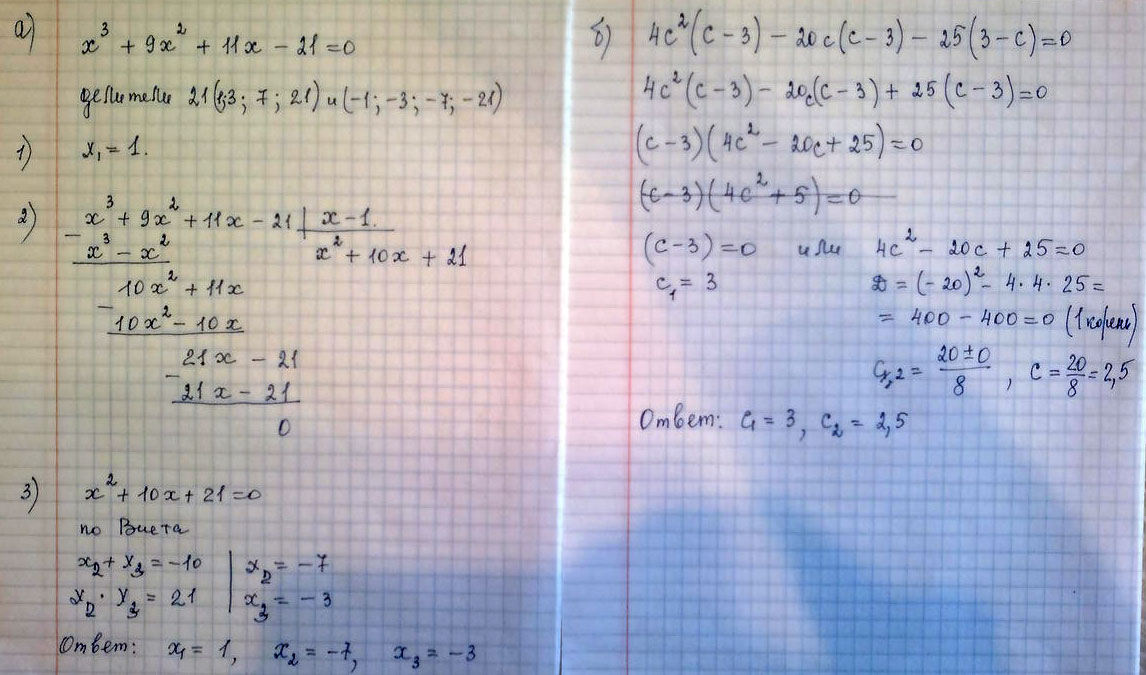 а)
x³ + 9x² + 11x - 21 = 0
делители 21 (1;3; 7; 21) и (-1; -3; -7; -21)
1) x₁ = 1.
2) x³ + 9x² + 11x - 21 | x - 1.
- x³ - x²
x² + 10x + 21
10x² + 11x
- 10x² - 10x
21x - 21
- 21x - 21
0
3) x² + 10x + 21 = 0
по Виета
x₂ + x₃ = -10 | x₂ = -7
x₂ · x₃ = 21 | x₃ = -3
Ответ: x₁ = 1, x₂ = -7, x₃ = -3
б) 4c²(c - 3) - 20c(c - 3) - 25(3 - c) = 0
4c²(c - 3) - 20c(c - 3) + 25(c - 3) = 0
(c - 3)(4c² - 20c + 25) = 0
(c - 3)(4c² + 5) = 0
(c - 3) = 0 или 4c² - 20c + 25 = 0
c₁ = 3 D = (-20)² - 4·4·25 =
= 400 - 400 = 0 (1 корень)
c₁,₂ = 20 ± 0 / 8 , c = 20/8 = 2,5
Ответ: c₁ = 3, c₂ = 2,5